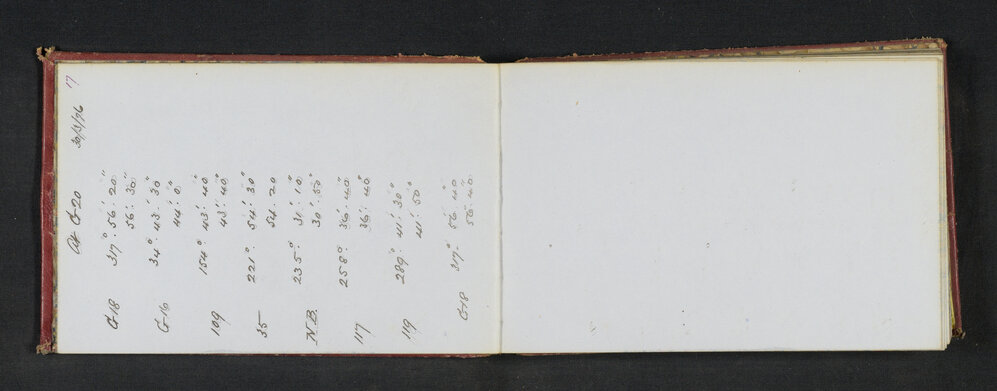 17
At G-20 30/3/96
G-18 317°. 56'. 20"
56'. 30"
G-16 34°. 43'. 30"
44'. 0"
109 154°. 43'. 40"
43'. 40"
35 221°. 54'. 30"
54. 20
N.B. 235°. 31'. 10"
30'. 50"
117 258°. 36'. 40"
36'. 40"
119 289°. 41'. 30"
41'. 50"
G-18 317°. 56'. 40"
56'. 40"